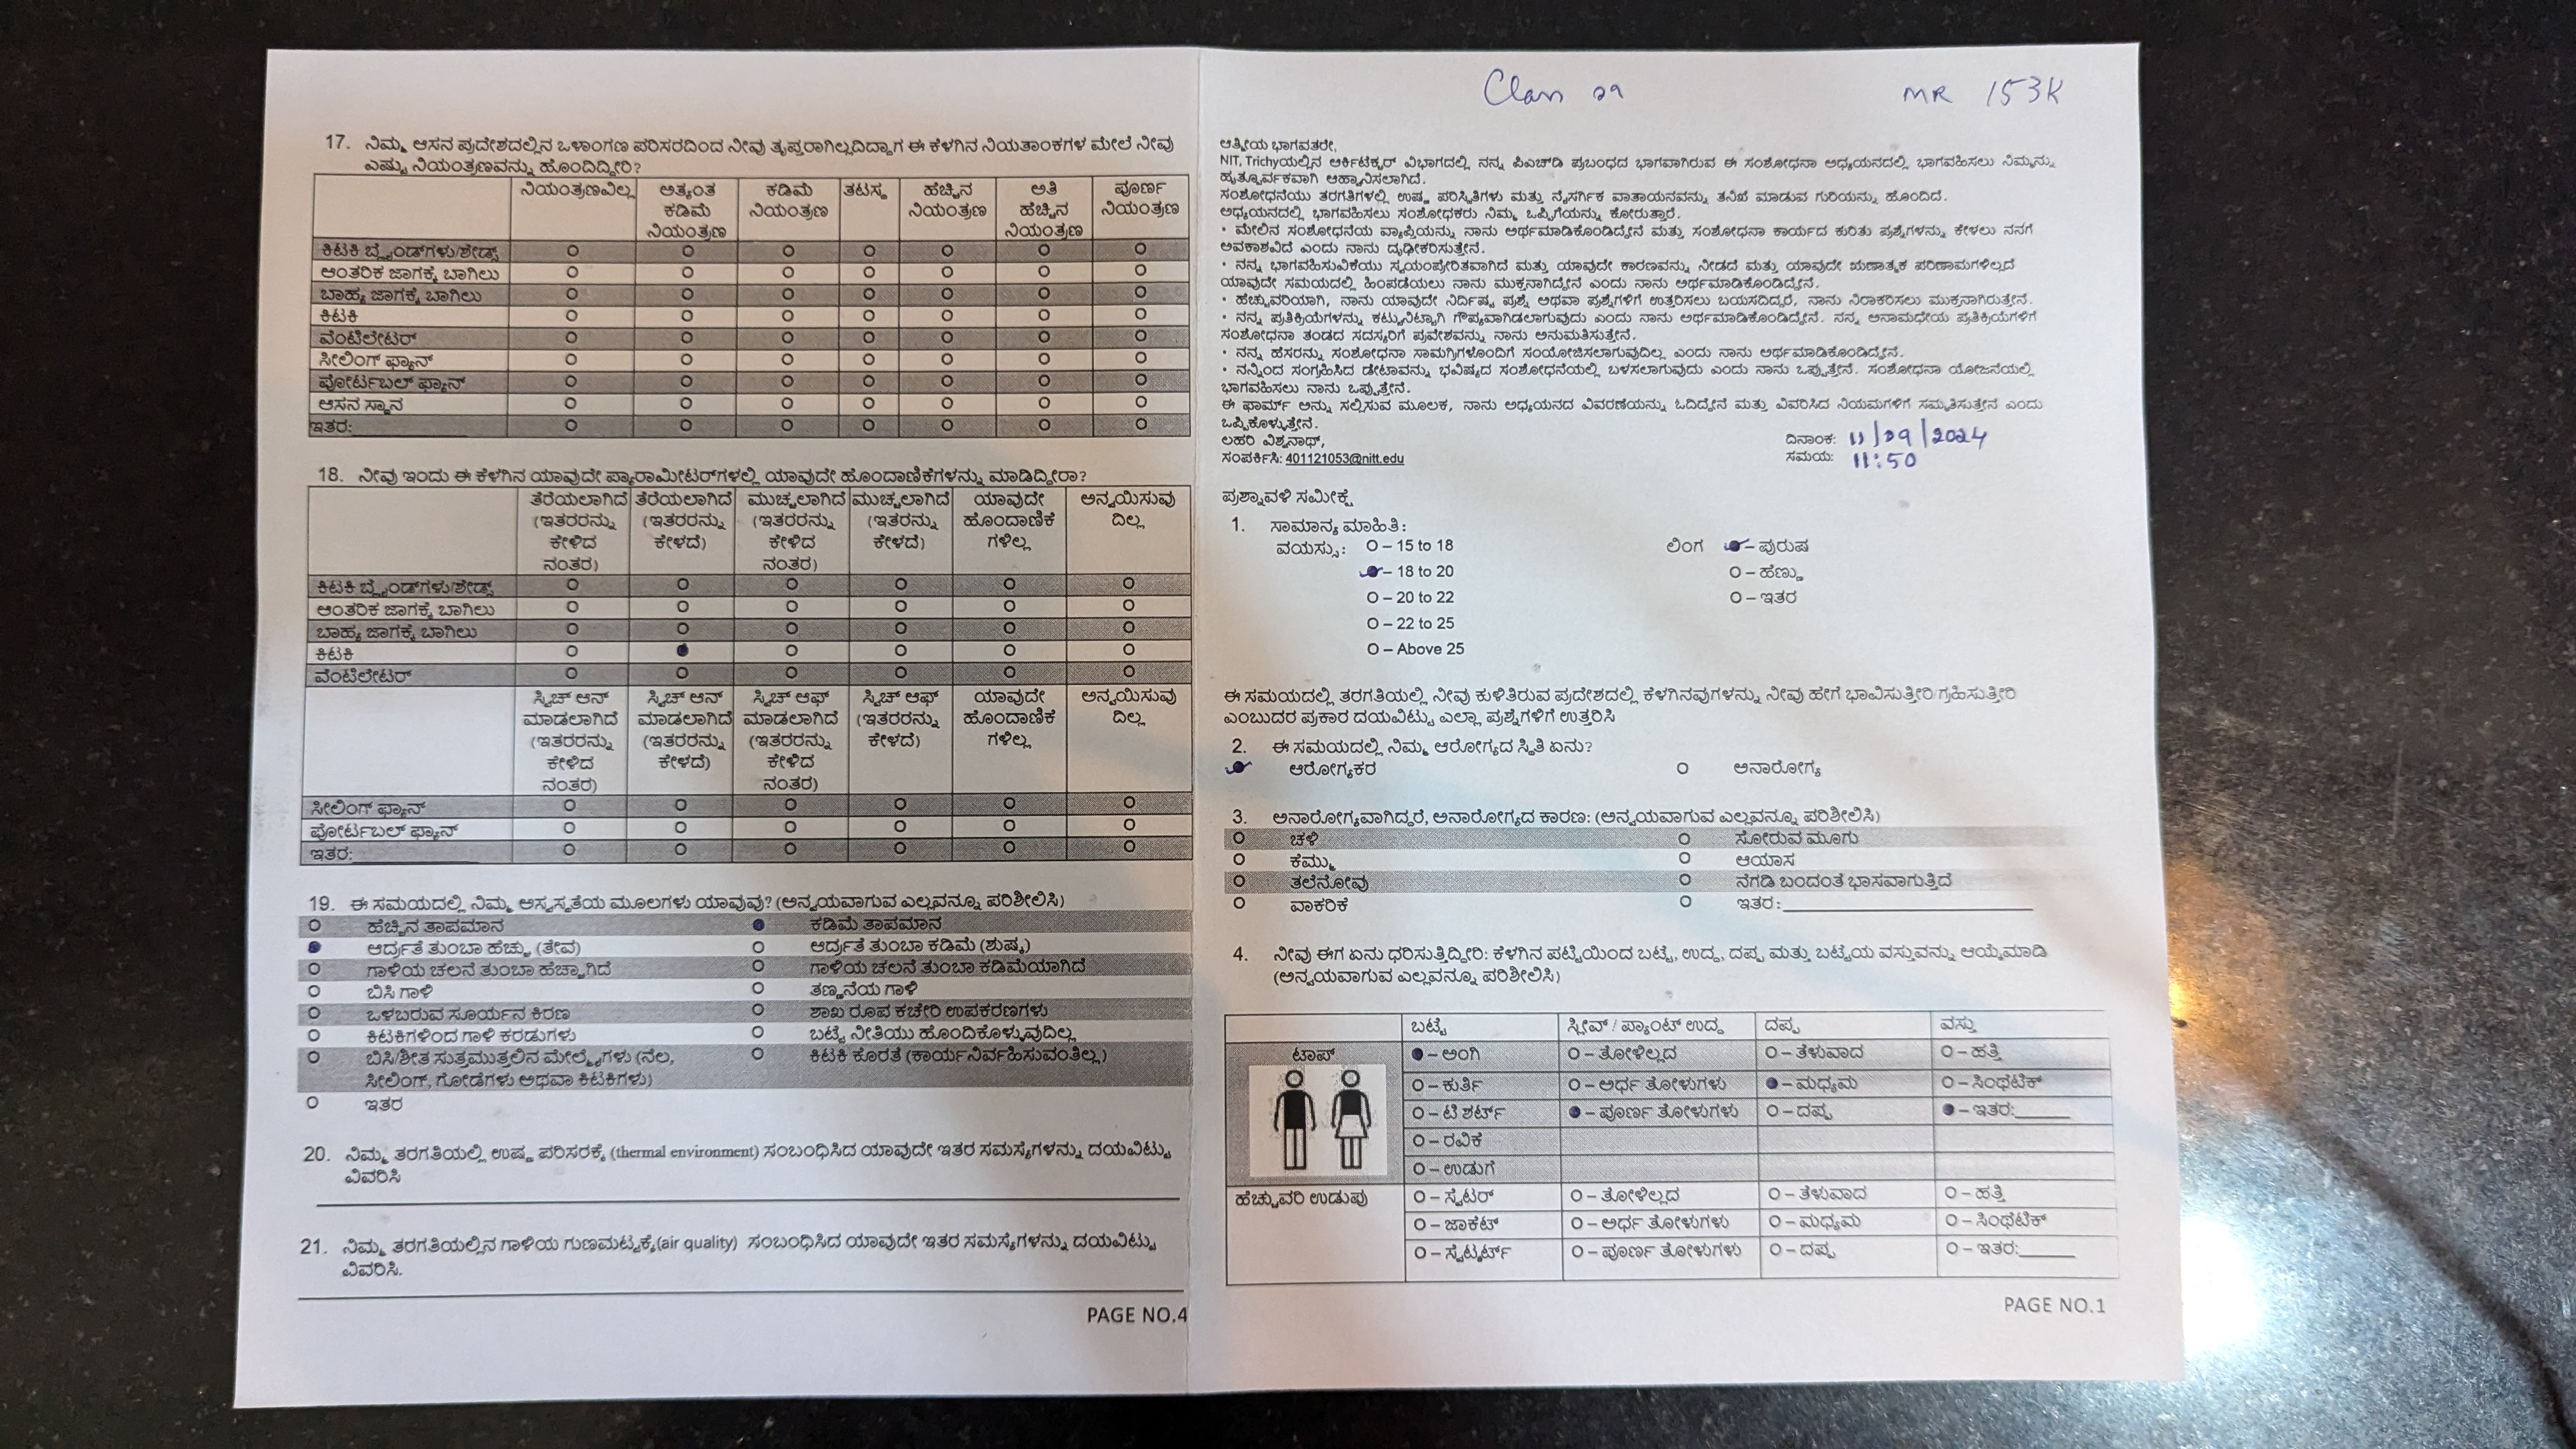 17. ನಿಮ್ಮ ಆಸನ ಪ್ರದೇಶದಲ್ಲಿನ ಒಳಾಂಗಣ ಪರಿಸರದಿಂದ ನೀವು ತೃಪ್ತರಾಗಿಲ್ಲದಿದ್ದಾಗ ಈ ಕೆಳಗಿನ ನಿಯತಾಂಕಗಳ ಮೇಲೆ ನೀವು
ಎಷ್ಟು ನಿಯಂತ್ರಣವನ್ನು ಹೊಂದಿದ್ದೀರಿ?
ನಿಯಂತ್ರಣವಿಲ್ಲ ಅತ್ಯಂತ ಕಡಿಮೆ ನಿಯಂತ್ರಣ ಕಡಿಮೆ ನಿಯಂತ್ರಣ ತಟಸ್ಥ ಹೆಚ್ಚಿನ ನಿಯಂತ್ರಣ ಅತಿ ಹೆಚ್ಚಿನ ನಿಯಂತ್ರಣ ಪೂರ್ಣ ನಿಯಂತ್ರಣ
ಕಿಟಕಿ ಬ್ಲೈಂಡ್‌ಗಳು/ಶೇಡ್ಸ್
ಆಂತರಿಕ ಜಾಗಕ್ಕೆ ಬಾಗಿಲು
ಬಾಹ್ಯ ಜಾಗಕ್ಕೆ ಬಾಗಿಲು
ಕಿಟಕಿ
ವೆಂಟಿಲೇಟರ್
ಸೀಲಿಂಗ್ ಫ್ಯಾನ್
ಪೋರ್ಟಬಲ್ ಫ್ಯಾನ್
ಆಸನ ಸ್ಥಾನ
ಇತರ:
18. ನೀವು ಇಂದು ಈ ಕೆಳಗಿನ ಯಾವುದೇ ಪ್ಯಾರಾಮೀಟರ್‌ಗಳಲ್ಲಿ ಯಾವುದೇ ಹೊಂದಾಣಿಕೆಗಳನ್ನು ಮಾಡಿದ್ದೀರಾ?
ತೆರೆಯಲಾಗಿದೆ (ಇತರರನ್ನು ಕೇಳಿದ ನಂತರ) ತೆರೆಯಲಾಗಿದೆ (ಇತರರನ್ನು ಕೇಳದೆ) ಮುಚ್ಚಲಾಗಿದೆ (ಇತರರನ್ನು ಕೇಳಿದ ನಂತರ) ಮುಚ್ಚಲಾಗಿದೆ (ಇತರರನ್ನು ಕೇಳದೆ) ಯಾವುದೇ ಹೊಂದಾಣಿಕೆಗಳಿಲ್ಲ ಅನ್ವಯಿಸುವುದಿಲ್ಲ
ಕಿಟಕಿ ಬ್ಲೈಂಡ್‌ಗಳು/ಶೇಡ್ಸ್
ಆಂತರಿಕ ಜಾಗಕ್ಕೆ ಬಾಗಿಲು
ಬಾಹ್ಯ ಜಾಗಕ್ಕೆ ಬಾಗಿಲು
ಕಿಟಕಿ
ವೆಂಟಿಲೇಟರ್
ಸ್ವಿಚ್ ಆನ್ ಮಾಡಲಾಗಿದೆ (ಇತರರನ್ನು ಕೇಳಿದ ನಂತರ) ಸ್ವಿಚ್ ಆನ್ ಮಾಡಲಾಗಿದೆ (ಇತರರನ್ನು ಕೇಳದೆ) ಸ್ವಿಚ್ ಆಫ್ ಮಾಡಲಾಗಿದೆ (ಇತರರನ್ನು ಕೇಳಿದ ನಂತರ) ಸ್ವಿಚ್ ಆಫ್ (ಇತರರನ್ನು ಕೇಳದೆ) ಯಾವುದೇ ಹೊಂದಾಣಿಕೆಗಳಿಲ್ಲ ಅನ್ವಯಿಸುವುದಿಲ್ಲ
ಸೀಲಿಂಗ್ ಫ್ಯಾನ್
ಪೋರ್ಟಬಲ್ ಫ್ಯಾನ್
ಇತರ:
19. ಈ ಸಮಯದಲ್ಲಿ ನಿಮ್ಮ ಅಸ್ವಸ್ಥತೆಯ ಮೂಲಗಳು ಯಾವುವು? (ಅನ್ವಯವಾಗುವ ಎಲ್ಲವನ್ನೂ ಪರಿಶೀಲಿಸಿ)
ಹೆಚ್ಚಿನ ತಾಪಮಾನ ಕಡಿಮೆ ತಾಪಮಾನ
ಆರ್ದ್ರತೆ ತುಂಬಾ ಹೆಚ್ಚು (ತೇವ) ಆರ್ದ್ರತೆ ತುಂಬಾ ಕಡಿಮೆ (ಶುಷ್ಕ)
ಗಾಳಿಯ ಚಲನೆ ತುಂಬಾ ಹೆಚ್ಚಾಗಿದೆ ಗಾಳಿಯ ಚಲನೆ ತುಂಬಾ ಕಡಿಮೆಯಾಗಿದೆ
ಬಿಸಿ ಗಾಳಿ ತಣ್ಣನೆಯ ಗಾಳಿ
ಒಳಬರುವ ಸೂರ್ಯನ ಕಿರಣ ಶಾಖ ರೂಪ ಕಚೇರಿ ಉಪಕರಣಗಳು
ಕಿಟಕಿಗಳಿಂದ ಗಾಳಿ ಕರಡುಗಳು ಬಟ್ಟೆ ನೀತಿಯು ಹೊಂದಿಕೊಳ್ಳುವುದಿಲ್ಲ
ಬಿಸಿ/ಶೀತ ಸುತ್ತಮುತ್ತಲಿನ ಮೇಲ್ಮೈಗಳು (ನೆಲ, ಕಿಟಕಿ ಕೊರತೆ (ಕಾರ್ಯನಿರ್ವಹಿಸುವಂತಿಲ್ಲ)
ಸೀಲಿಂಗ್, ಗೋಡೆಗಳು ಅಥವಾ ಕಿಟಕಿಗಳು)
ಇತರ
20. ನಿಮ್ಮ ತರಗತಿಯಲ್ಲಿ ಉಷ್ಣ ಪರಿಸರಕ್ಕೆ (thermal environment) ಸಂಬಂಧಿಸಿದ ಯಾವುದೇ ಇತರ ಸಮಸ್ಯೆಗಳನ್ನು ದಯವಿಟ್ಟು
ವಿವರಿಸಿ
21. ನಿಮ್ಮ ತರಗತಿಯಲ್ಲಿನ ಗಾಳಿಯ ಗುಣಮಟ್ಟಕ್ಕೆ(air quality) ಸಂಬಂಧಿಸಿದ ಯಾವುದೇ ಇತರ ಸಮಸ್ಯೆಗಳನ್ನು ದಯವಿಟ್ಟು
ವಿವರಿಸಿ.
PAGE NO.4
MR 153K
ಆತ್ಮೀಯ ಭಾಗವತರೇ,
NIT, Trichyಯಲ್ಲಿನ ಆರ್ಕಿಟೆಕ್ಚರ್ ವಿಭಾಗದಲ್ಲಿ ನನ್ನ ಪಿಎಚ್‌ಡಿ ಪ್ರಬಂಧದ ಭಾಗವಾಗಿರುವ ಈ ಸಂಶೋಧನಾ ಅಧ್ಯಯನದಲ್ಲಿ ಭಾಗವಹಿಸಲು ನಿಮ್ಮನ್ನು
ಹೃತ್ಪೂರ್ವಕವಾಗಿ ಆಹ್ವಾನಿಸಲಾಗಿದೆ.
ಸಂಶೋಧನೆಯು ತರಗತಿಗಳಲ್ಲಿ ಉಷ್ಣ ಪರಿಸ್ಥಿತಿಗಳು ಮತ್ತು ನೈಸರ್ಗಿಕ ವಾತಾಯನವನ್ನು ತನಿಖೆ ಮಾಡುವ ಗುರಿಯನ್ನು ಹೊಂದಿದೆ.
ಅಧ್ಯಯನದಲ್ಲಿ ಭಾಗವಹಿಸಲು ಸಂಶೋಧಕರು ನಿಮ್ಮ ಒಪ್ಪಿಗೆಯನ್ನು ಕೋರುತ್ತಾರೆ.
• ಮೇಲಿನ ಸಂಶೋಧನೆಯ ವ್ಯಾಪ್ತಿಯನ್ನು ನಾನು ಅರ್ಥಮಾಡಿಕೊಂಡಿದ್ದೇನೆ ಮತ್ತು ಸಂಶೋಧನಾ ಕಾರ್ಯದ ಕುರಿತು ಪ್ರಶ್ನೆಗಳನ್ನು ಕೇಳಲು ನನಗೆ
ಅವಕಾಶವಿದೆ ಎಂದು ನಾನು ದೃಢೀಕರಿಸುತ್ತೇನೆ.
• ನನ್ನ ಭಾಗವಹಿಸುವಿಕೆಯು ಸ್ವಯಂಪ್ರೇರಿತವಾಗಿದೆ ಮತ್ತು ಯಾವುದೇ ಕಾರಣವನ್ನು ನೀಡದೆ ಮತ್ತು ಯಾವುದೇ ಋಣಾತ್ಮಕ ಪರಿಣಾಮಗಳಿಲ್ಲದೆ
ಯಾವುದೇ ಸಮಯದಲ್ಲಿ ಹಿಂಪಡೆಯಲು ನಾನು ಮುಕ್ತನಾಗಿದ್ದೇನೆ ಎಂದು ನಾನು ಅರ್ಥಮಾಡಿಕೊಂಡಿದ್ದೇನೆ.
• ಹೆಚ್ಚುವರಿಯಾಗಿ, ನಾನು ಯಾವುದೇ ನಿರ್ದಿಷ್ಟ ಪ್ರಶ್ನೆ ಅಥವಾ ಪ್ರಶ್ನೆಗಳಿಗೆ ಉತ್ತರಿಸಲು ಬಯಸದಿದ್ದರೆ, ನಾನು ನಿರಾಕರಿಸಲು ಮುಕ್ತನಾಗಿರುತ್ತೇನೆ.
• ನನ್ನ ಪ್ರತಿಕ್ರಿಯೆಗಳನ್ನು ಕಟ್ಟುನಿಟ್ಟಾಗಿ ಗೌಪ್ಯವಾಗಿಡಲಾಗುವುದು ಎಂದು ನಾನು ಅರ್ಥಮಾಡಿಕೊಂಡಿದ್ದೇನೆ. ನನ್ನ ಅನಾಮಧೇಯ ಪ್ರತಿಕ್ರಿಯೆಗಳಿಗೆ
ಸಂಶೋಧನಾ ತಂಡದ ಸದಸ್ಯರಿಗೆ ಪ್ರವೇಶವನ್ನು ನಾನು ಅನುಮತಿಸುತ್ತೇನೆ.
• ನನ್ನ ಹೆಸರನ್ನು ಸಂಶೋಧನಾ ಸಾಮಗ್ರಿಗಳೊಂದಿಗೆ ಸಂಯೋಜಿಸಲಾಗುವುದಿಲ್ಲ ಎಂದು ನಾನು ಅರ್ಥಮಾಡಿಕೊಂಡಿದ್ದೇನೆ.
• ನನ್ನಿಂದ ಸಂಗ್ರಹಿಸಿದ ಡೇಟಾವನ್ನು ಭವಿಷ್ಯದ ಸಂಶೋಧನೆಯಲ್ಲಿ ಬಳಸಲಾಗುವುದು ಎಂದು ನಾನು ಒಪ್ಪುತ್ತೇನೆ. ಸಂಶೋಧನಾ ಯೋಜನೆಯಲ್ಲಿ
ಭಾಗವಹಿಸಲು ನಾನು ಒಪ್ಪುತ್ತೇನೆ.
ಈ ಫಾರ್ಮ್ ಅನ್ನು ಸಲ್ಲಿಸುವ ಮೂಲಕ, ನಾನು ಅಧ್ಯಯನದ ವಿವರಣೆಯನ್ನು ಓದಿದ್ದೇನೆ ಮತ್ತು ವಿವರಿಸಿದ ನಿಯಮಗಳಿಗೆ ಸಮ್ಮತಿಸುತ್ತೇನೆ ಎಂದು
ಒಪ್ಪಿಕೊಳ್ಳುತ್ತೇನೆ.
ಲಹರಿ ವಿಶ್ವನಾಥ್, ದಿನಾಂಕ: 11/09/2024
ಸಂಪರ್ಕಿಸಿ: 401121053@nitt.edu ಸಮಯ: 11:50
ಪ್ರಶ್ನಾವಳಿ ಸಮೀಕ್ಷೆ
1. ಸಾಮಾನ್ಯ ಮಾಹಿತಿ:
ವಯಸ್ಸು: O – 15 to 18 ಲಿಂಗ – ಪುರುಷ
– 18 to 20 O – ಹೆಣ್ಣು
O – 20 to 22 O – ಇತರ
O – 22 to 25
O – Above 25
ಈ ಸಮಯದಲ್ಲಿ ತರಗತಿಯಲ್ಲಿ ನೀವು ಕುಳಿತಿರುವ ಪ್ರದೇಶದಲ್ಲಿ ಕೆಳಗಿನವುಗಳನ್ನು ನೀವು ಹೇಗೆ ಭಾವಿಸುತ್ತೀರಿ/ಗ್ರಹಿಸುತ್ತೀರಿ
ಎಂಬುದರ ಪ್ರಕಾರ ದಯವಿಟ್ಟು ಎಲ್ಲಾ ಪ್ರಶ್ನೆಗಳಿಗೆ ಉತ್ತರಿಸಿ
2. ಈ ಸಮಯದಲ್ಲಿ ನಿಮ್ಮ ಆರೋಗ್ಯದ ಸ್ಥಿತಿ ಏನು?
ಆರೋಗ್ಯಕರ ಅನಾರೋಗ್ಯ
3. ಅನಾರೋಗ್ಯವಾಗಿದ್ದರೆ, ಅನಾರೋಗ್ಯದ ಕಾರಣ: (ಅನ್ವಯವಾಗುವ ಎಲ್ಲವನ್ನೂ ಪರಿಶೀಲಿಸಿ)
ಚಳಿ ಸೋರುವ ಮೂಗು
ಕೆಮ್ಮು ಆಯಾಸ
ತಲೆನೋವು ನೆಗಡಿ ಬಂದಂತೆ ಭಾಸವಾಗುತ್ತಿದೆ
ವಾಕರಿಕೆ ಇತರ:
4. ನೀವು ಈಗ ಏನು ಧರಿಸುತ್ತಿದ್ದೀರಿ: ಕೆಳಗಿನ ಪಟ್ಟಿಯಿಂದ ಬಟ್ಟೆ, ಉದ್ದ, ದಪ್ಪ ಮತ್ತು ಬಟ್ಟೆಯ ವಸ್ತುವನ್ನು ಆಯ್ಕೆಮಾಡಿ
(ಅನ್ವಯವಾಗುವ ಎಲ್ಲವನ್ನೂ ಪರಿಶೀಲಿಸಿ)
ಬಟ್ಟೆ ಸ್ಲೀವ್ / ಪ್ಯಾಂಟ್ ಉದ್ದ ದಪ್ಪ ವಸ್ತು
ಟಾಪ್ – ಅಂಗಿ O – ತೋಳಿಲ್ಲದ O – ತೆಳುವಾದ O – ಹತ್ತಿ
O – ಕುರ್ತಿ O – ಅರ್ಧ ತೋಳುಗಳು – ಮಧ್ಯಮ O – ಸಿಂಥೆಟಿಕ್
O – ಟಿ ಶರ್ಟ್ – ಪೂರ್ಣ ತೋಳುಗಳು O – ದಪ್ಪ – ಇತರ:
O – ರವಿಕೆ
O – ಉಡುಗೆ
ಹೆಚ್ಚುವರಿ ಉಡುಪು O – ಸ್ವೆಟರ್ O – ತೋಳಿಲ್ಲದ O – ತೆಳುವಾದ O – ಹತ್ತಿ
O – ಜಾಕೆಟ್ O – ಅರ್ಧ ತೋಳುಗಳು O – ಮಧ್ಯಮ O – ಸಿಂಥೆಟಿಕ್
O – ಸ್ವೆಟ್ಶರ್ಟ್ O – ಪೂರ್ಣ ತೋಳುಗಳು O – ದಪ್ಪ O – ಇತರ:
PAGE NO.1